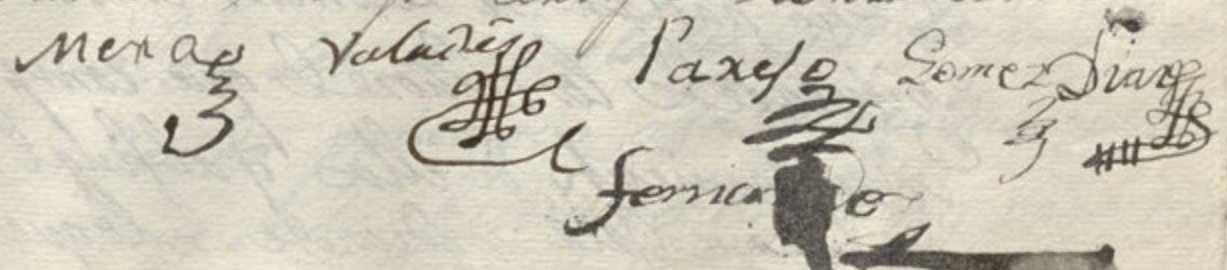 Mena Valades Parejo Gomez Diaz
Fernando